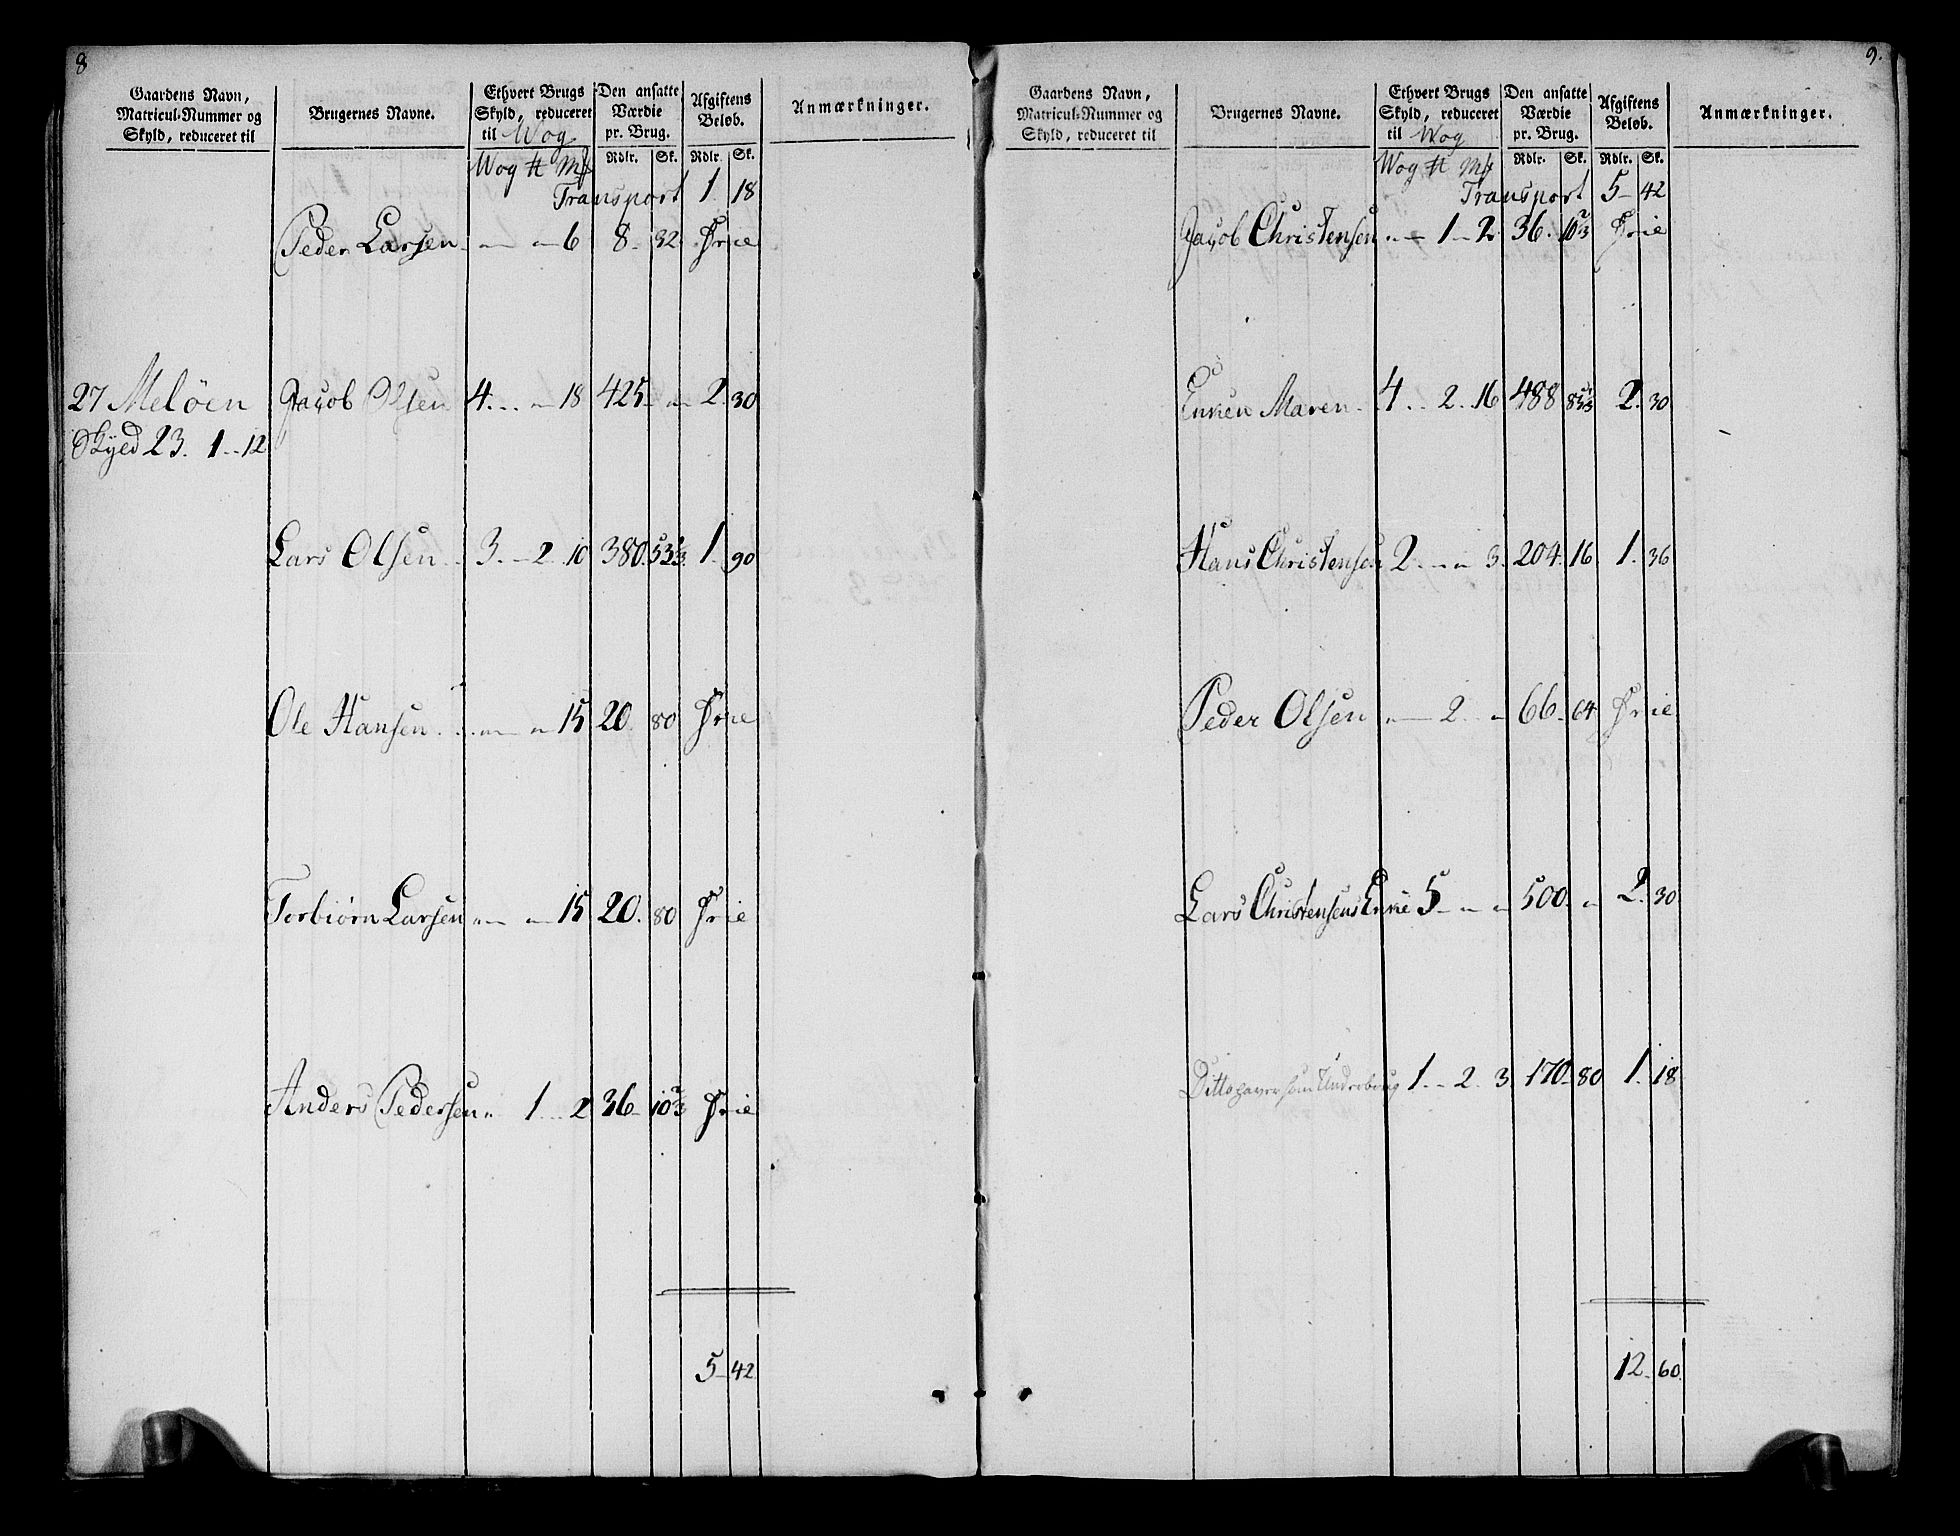 8
Gaardens Navn, Matricul-Nummer og Skyld, reduceret til
Brugernes Navne.
Ethvert Brugs Skyld, reduceret til Wog
Den ansatte Værdie pr. Brug.
Afgiftens Beløb.
Anmærkninger.
Wog ℔ Mk Rdlr. Sk. Rdlr. Sk.
Transport 1. 18
Peder Larsen - - - 6 8. 32. Frie
27 Meløen Jacob Olsen 4. - - 18 425 - - 2. 30
Skyld 23. 1 - 12
Lars Olsen 3. - 2 10 380. 53 1/3 1. 90
Ole Hansen - - - 15 20. 80 Frie
Torbiørn Larsen - - - 15 20. 80 Frie
Anders Pedersen - 1 - 2 36 - 10 2/3 Frie
5 - 42
9.
Gaardens Navn, Matricul-Nummer og Skyld, reduceret til
Brugernes Navne.
Ethvert Brugs Skyld, reduceret til Wog
Den ansatte Værdie pr. Brug.
Afgiftens Beløb.
Anmærkninger.
Wog ℔ Mk Rdlr. Sk. Rdlr. Sk.
Transport 5 - 42
Jacob Christensen - - 1 - 2. 36. 10 2/3 Frie
Enken Maren - 4 - 2. 16 488 85 1/3 2. 30
Hans Christensen 2. - - 3. 204. 16 1. 36
Peder Olsen - - 2. - 66 - 64 Frie
Lars Christensens Enke 5 - - - 500. - 2. 30
Ditto haver som Underbrug 1 - 2. 3 170 - 80 1. 18
12. 60.